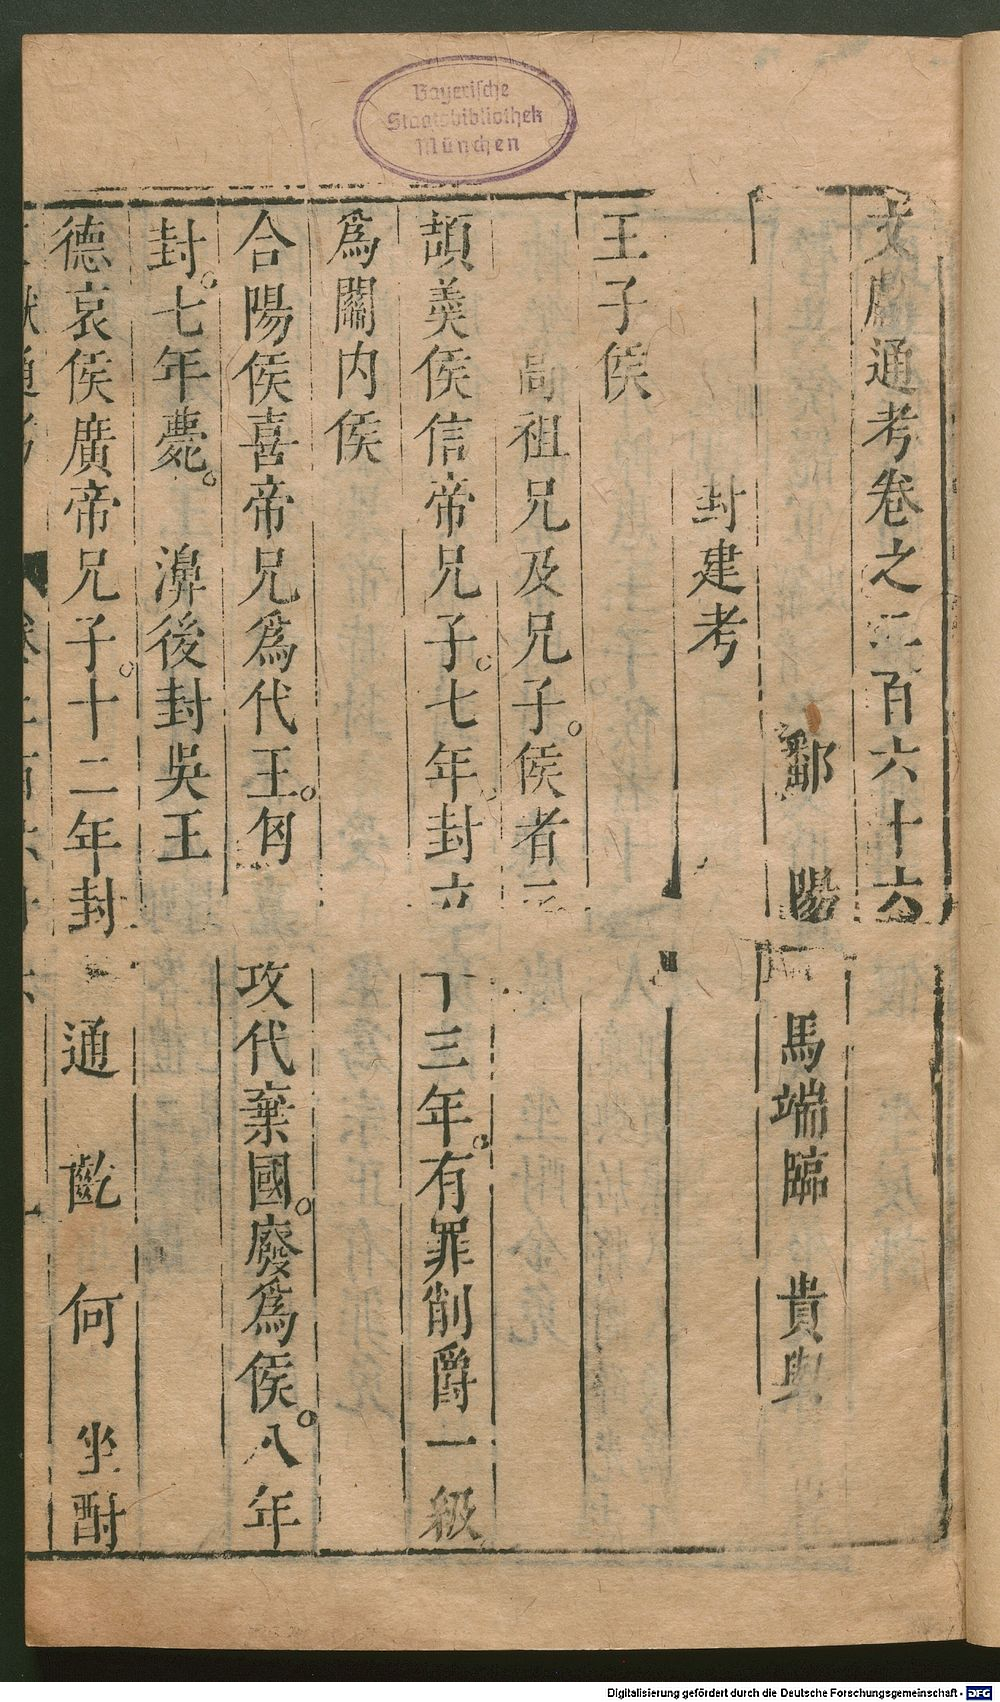 Bayerische
Staatsbibliothek
München
文獻通考卷之二百六十六
鄱陽馬端臨貴與
封建考
王子侯
高祖兄及兄子侯者三
頡羹侯信帝兄子七年封六十三年有罪削爵一級
爲關內侯
合陽侯喜帝兄爲代王匈攻代棄國廢爲侯八年
封七年薨 濞後封吳王
德哀侯廣帝兄子十二年封 通 齕 何 坐酎
Digitalisierung gefördert durch die Deutsche Forschungsgemeinschaft - DFG